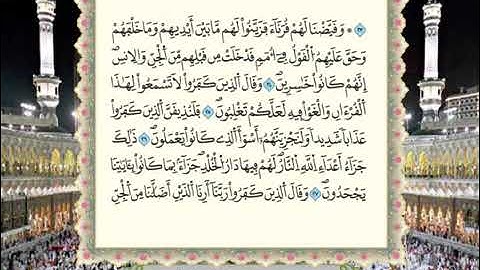 ٢٣ ۞ وَقَيَّضْنَا لَهُمْ قُرَنَآءَ فَزَيَّنُواْ لَهُم مَّا بَيْنَ أَيْدِيهِمْ وَمَا خَلْفَهُمْ
وَحَقَّ عَلَيْهِمُ الْقَوْلُ فِےٓ أُمَمٍ قَدْ خَلَتْ مِن قَبْلِهِم مِّنَ الْجِنِّ وَالِانسِ
إِنَّهُمْ كَانُواْ خَٰسِرِينَ ٢٤ وَقَالَ الذِينَ كَفَرُواْ لَا تَسْمَعُواْ لِهَٰذَا
الْقُرْءَانِ وَالْغَوْاْ فِيهِ لَعَلَّكُمْ تَغْلِبُونَ ٢٥ فَلَنُذِيقَنَّ الذِينَ كَفَرُواْ
عَذَاباً شَدِيداً وَلَنَجْزِيَنَّهُمُۥٓ أَسْوَأَ الذِے كَانُواْ يَعْمَلُونَ ٢٦ ذَٰلِكَ
جَزَآءُ اَعْدَآءِ اِللَّهِ النَّارُ لَهُمْ فِيهَا دَارُ الْخُلْدِ جَزَآءَۢ بِمَا كَانُواْ بِـَٔايَٰتِنَا
يَجْحَدُونَ ٢٧ وَقَالَ الذِينَ كَفَرُواْ رَبَّنَآ أَرِنَا الذَيْنِ أَضَلَّٰنَا مِنَ الْجِنِّ